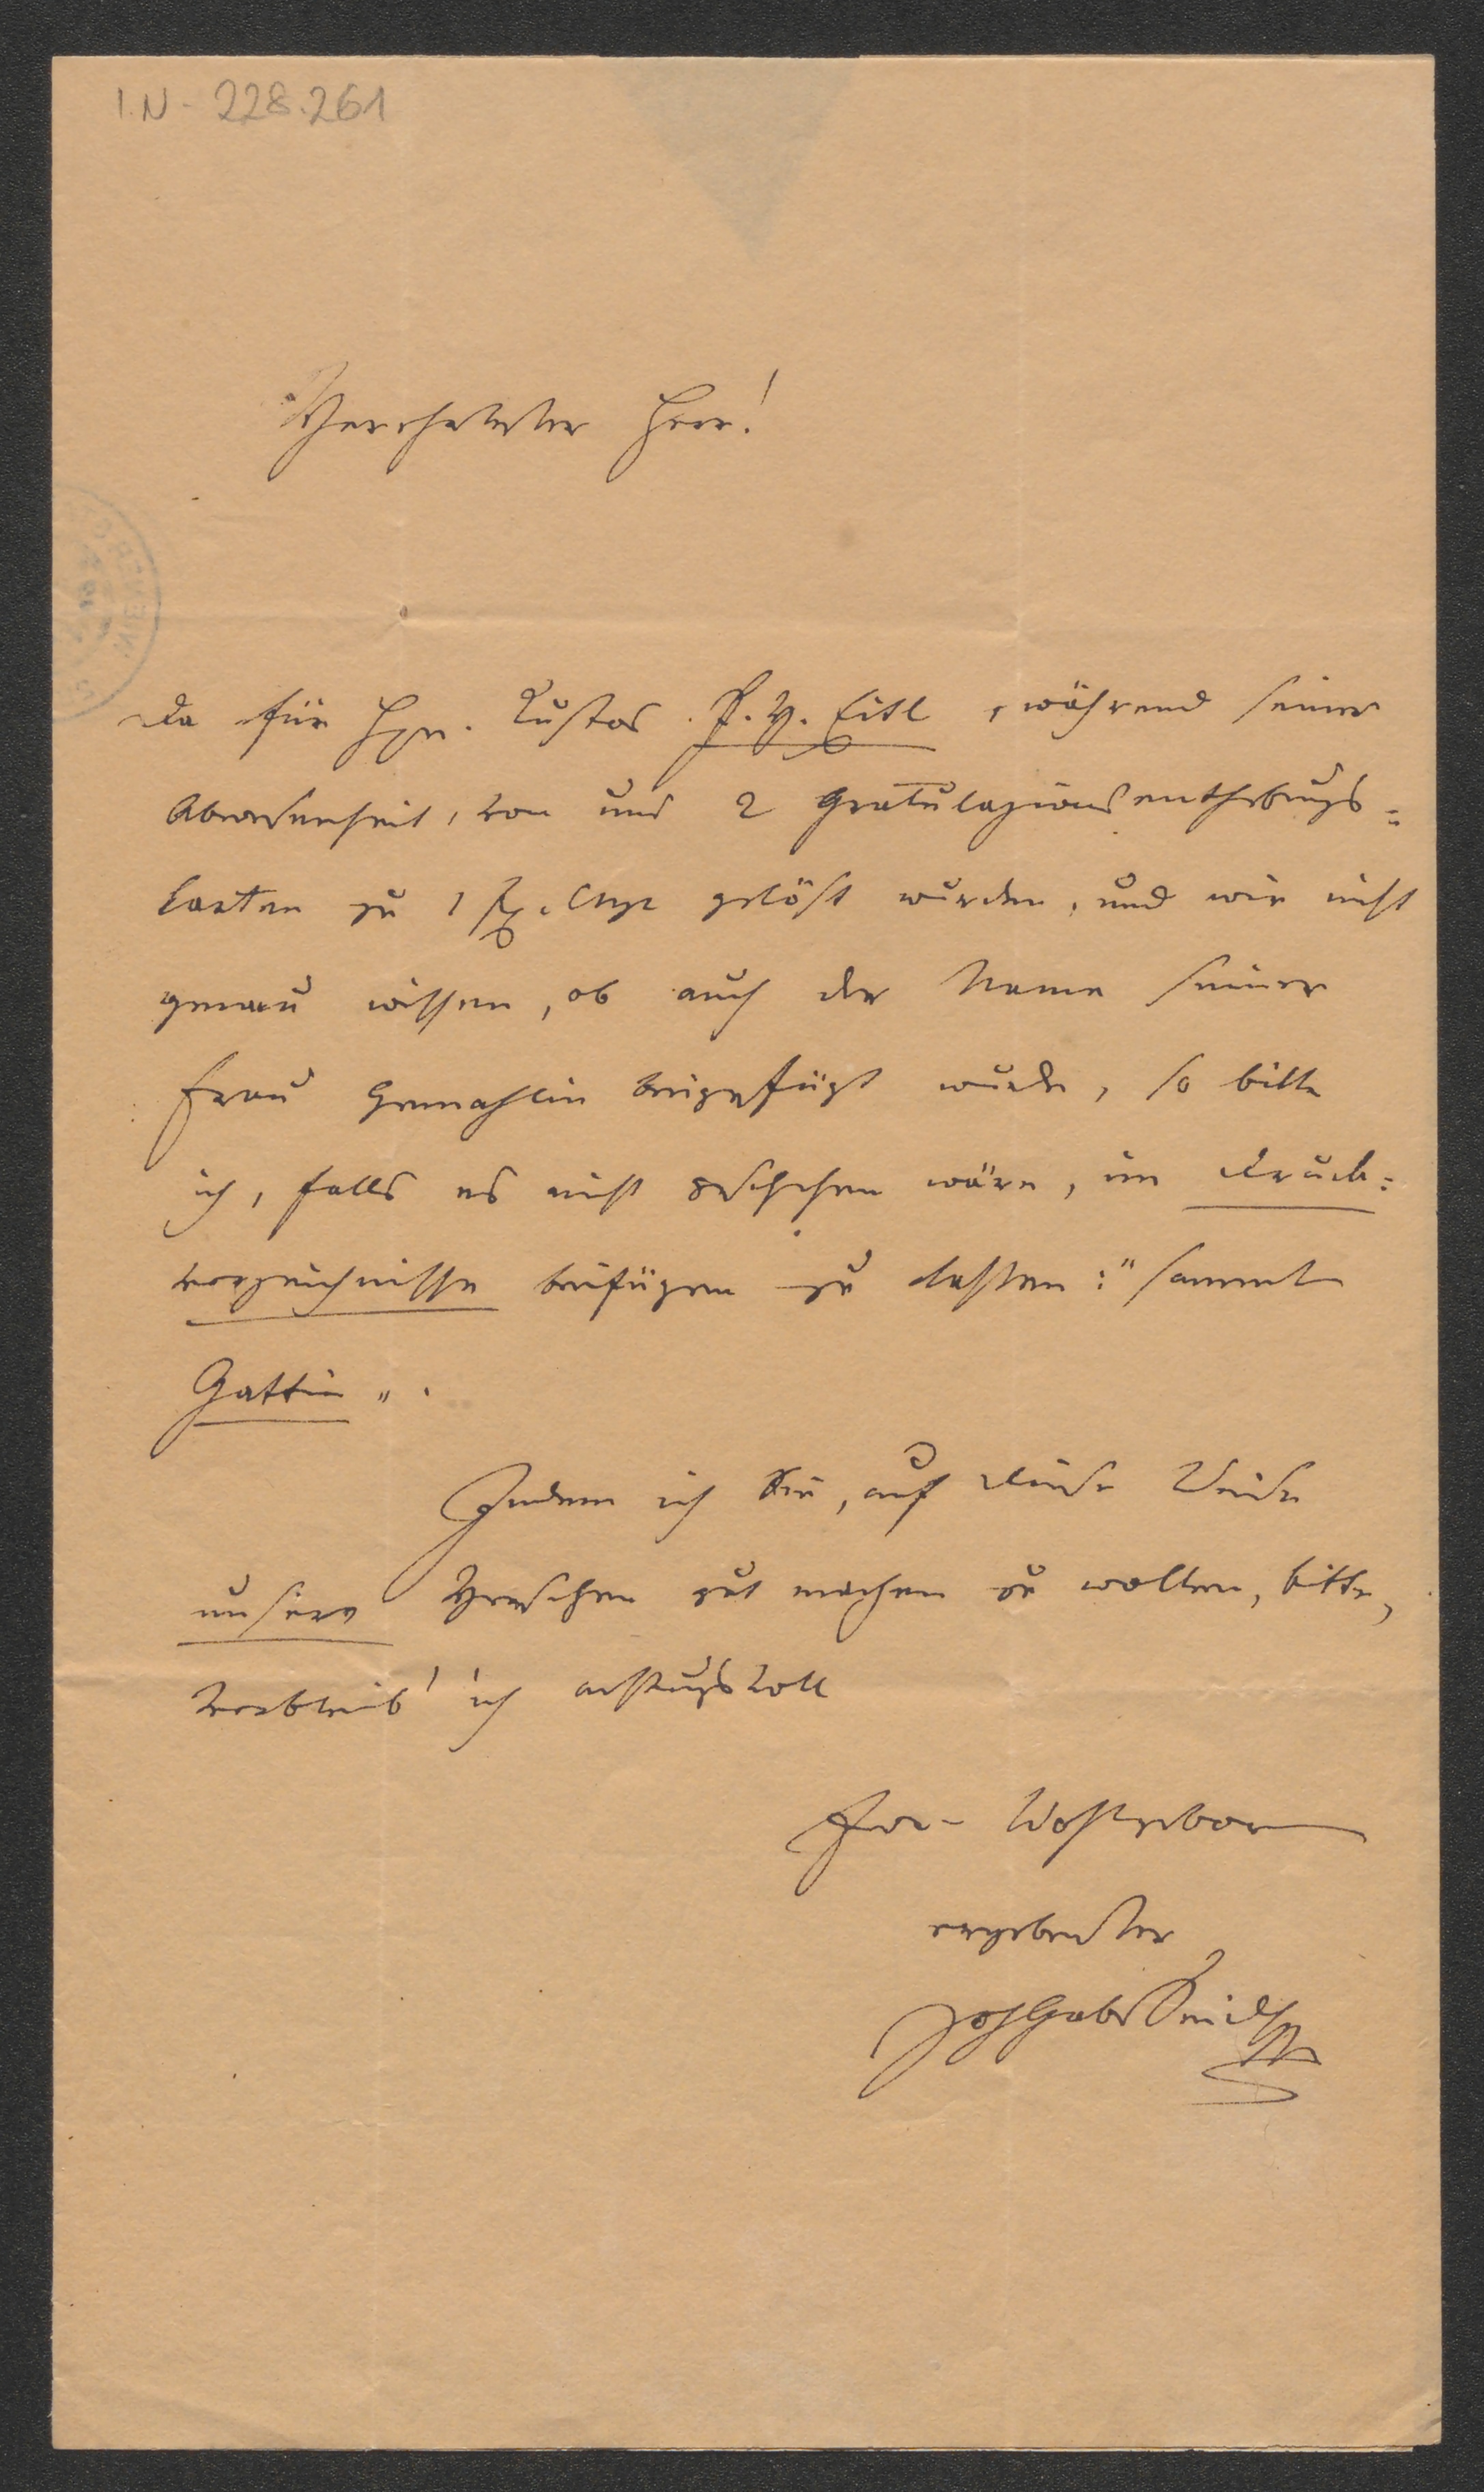 I.N - 228.261
Verehrtester Herr!
Da für Hrn. Custos P. V. Eitl, während seiner
Abwesenheit, von uns 2 Gratulazionsenthebungs=
karten zu 1 f. CMze gelöst wurden, und wir nicht
genau wissen, ob auch der Name seiner
Frau Gemahlin beigefügt wurde, so bitte
ich, falls es nicht geschehen wäre, im Druck=
verzeichnisse beifügen zu lassen: "sammt
Gattin".
Indem ich Sie, auf diese Weise
unser Versehen gut machen zu wollen, bitte,
verbleib' ich achtungsvoll
Euer Wohlgebor
ergebenster
Joh Gab Seidl